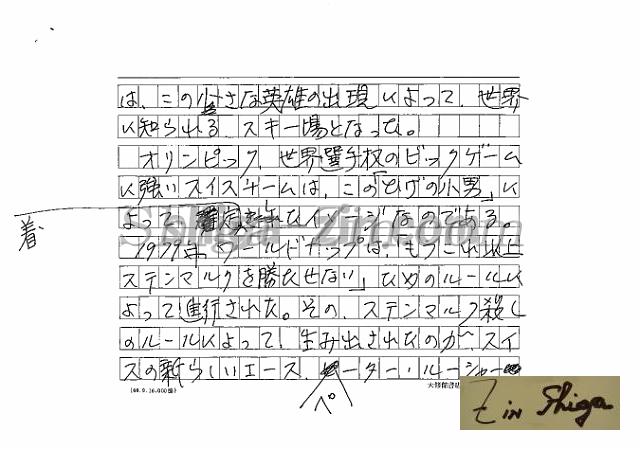 は、この小さな英雄の出現によって、世界
に知られる スキー場となった。
オリンピック、世界選手権のビックゲーム
に強いスイスチームは、この「ひげの小男」に
よって、着定されたイメージなのである。
着
1979年 ワールドカップは、「もうこれ以上
ステンマルクを勝たせない」ためのルールに
よって進行された。その、ステンマルク殺し
のルールによって、生み出されたのが、スイ
スの新らしいエース、ペーター・ルーシャー
Shiga-Zin.com
大修館書店
Z in Shiga